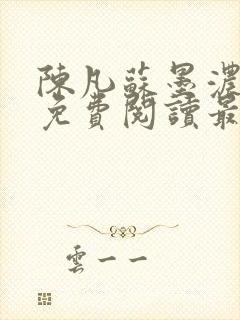 陳凡蘇墨濃
免費閱讀最
雲一一